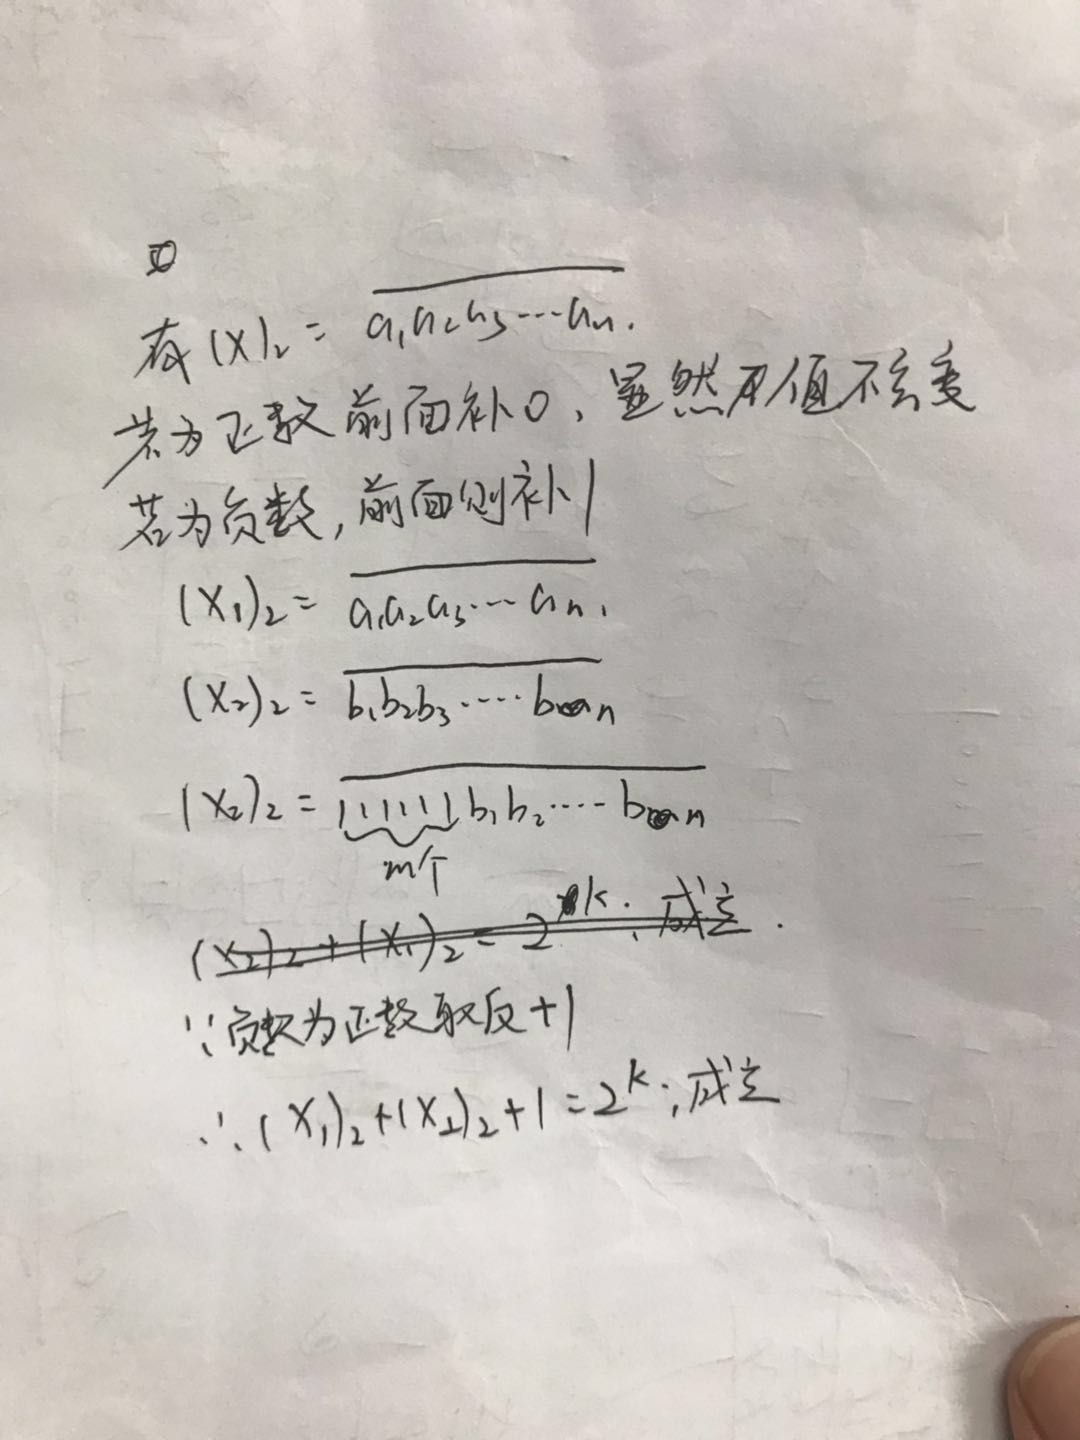 有(X)₂ = a₁a₂a₃…aₙ.
若为正数前面补0,显然值不会变
若为负数,前面则补1
(X₁)₂ = a₁a₂a₃…aₙ.
(X₂)₂ = b₁b₂b₃….bₙ
(X₂)₂ = 111111b₁b₂….bₙ
m个
(X₂)₂+(X₁)₂=2ᵏ∴成立.
∵负数为正数取反+1
∴(X₁)₂+(X₂)₂+1=2ᵏ∴成立